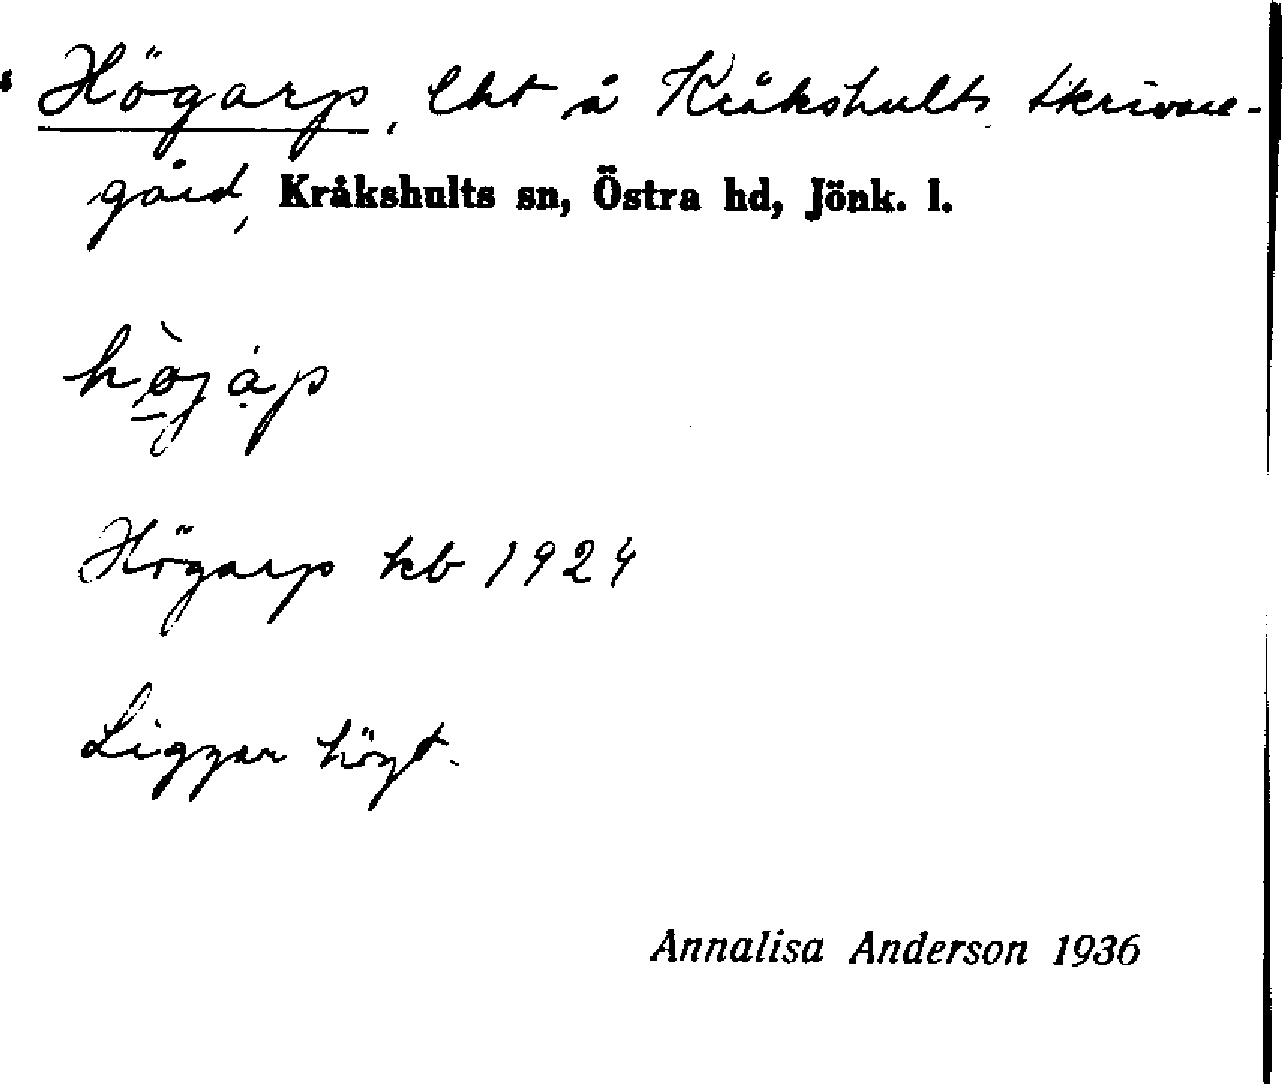 Högarp, lht å Kråkshults skrivare-
gård, Kråkshults sn, Östra hd, Jönk. l.
Högarp kb 1924
Ligger högt.
Annalisa Anderson 1936